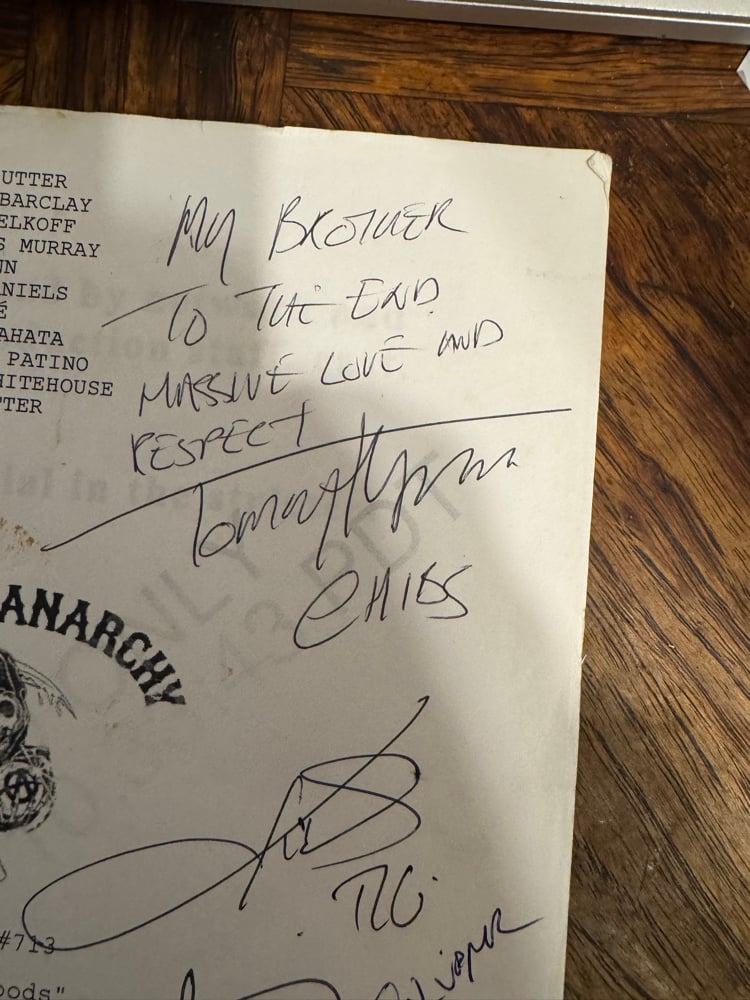 UTTER
BARCLAY
ELKOFF
S MURRAY
NN
ANIELS
É
AHATA
PATINO
HITEHOUSE
TTER
MY BROTHER
TO THE END
MASSIVE LOVE AND
RESPECT
Tommy Flanagan
CHIBS
ANARCHY
T.C.
#713
oods"